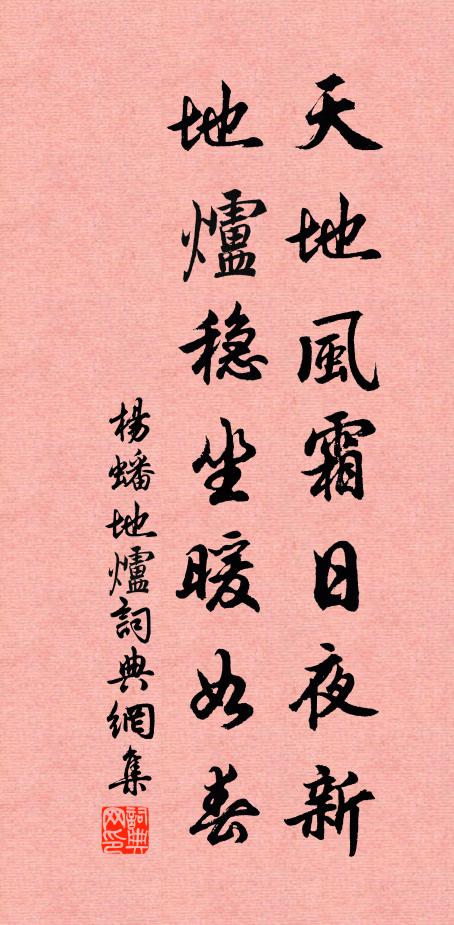 天地風霜日夜新
地爐稳坐暖如春
楊蟠地爐詞典網集
詞典网印